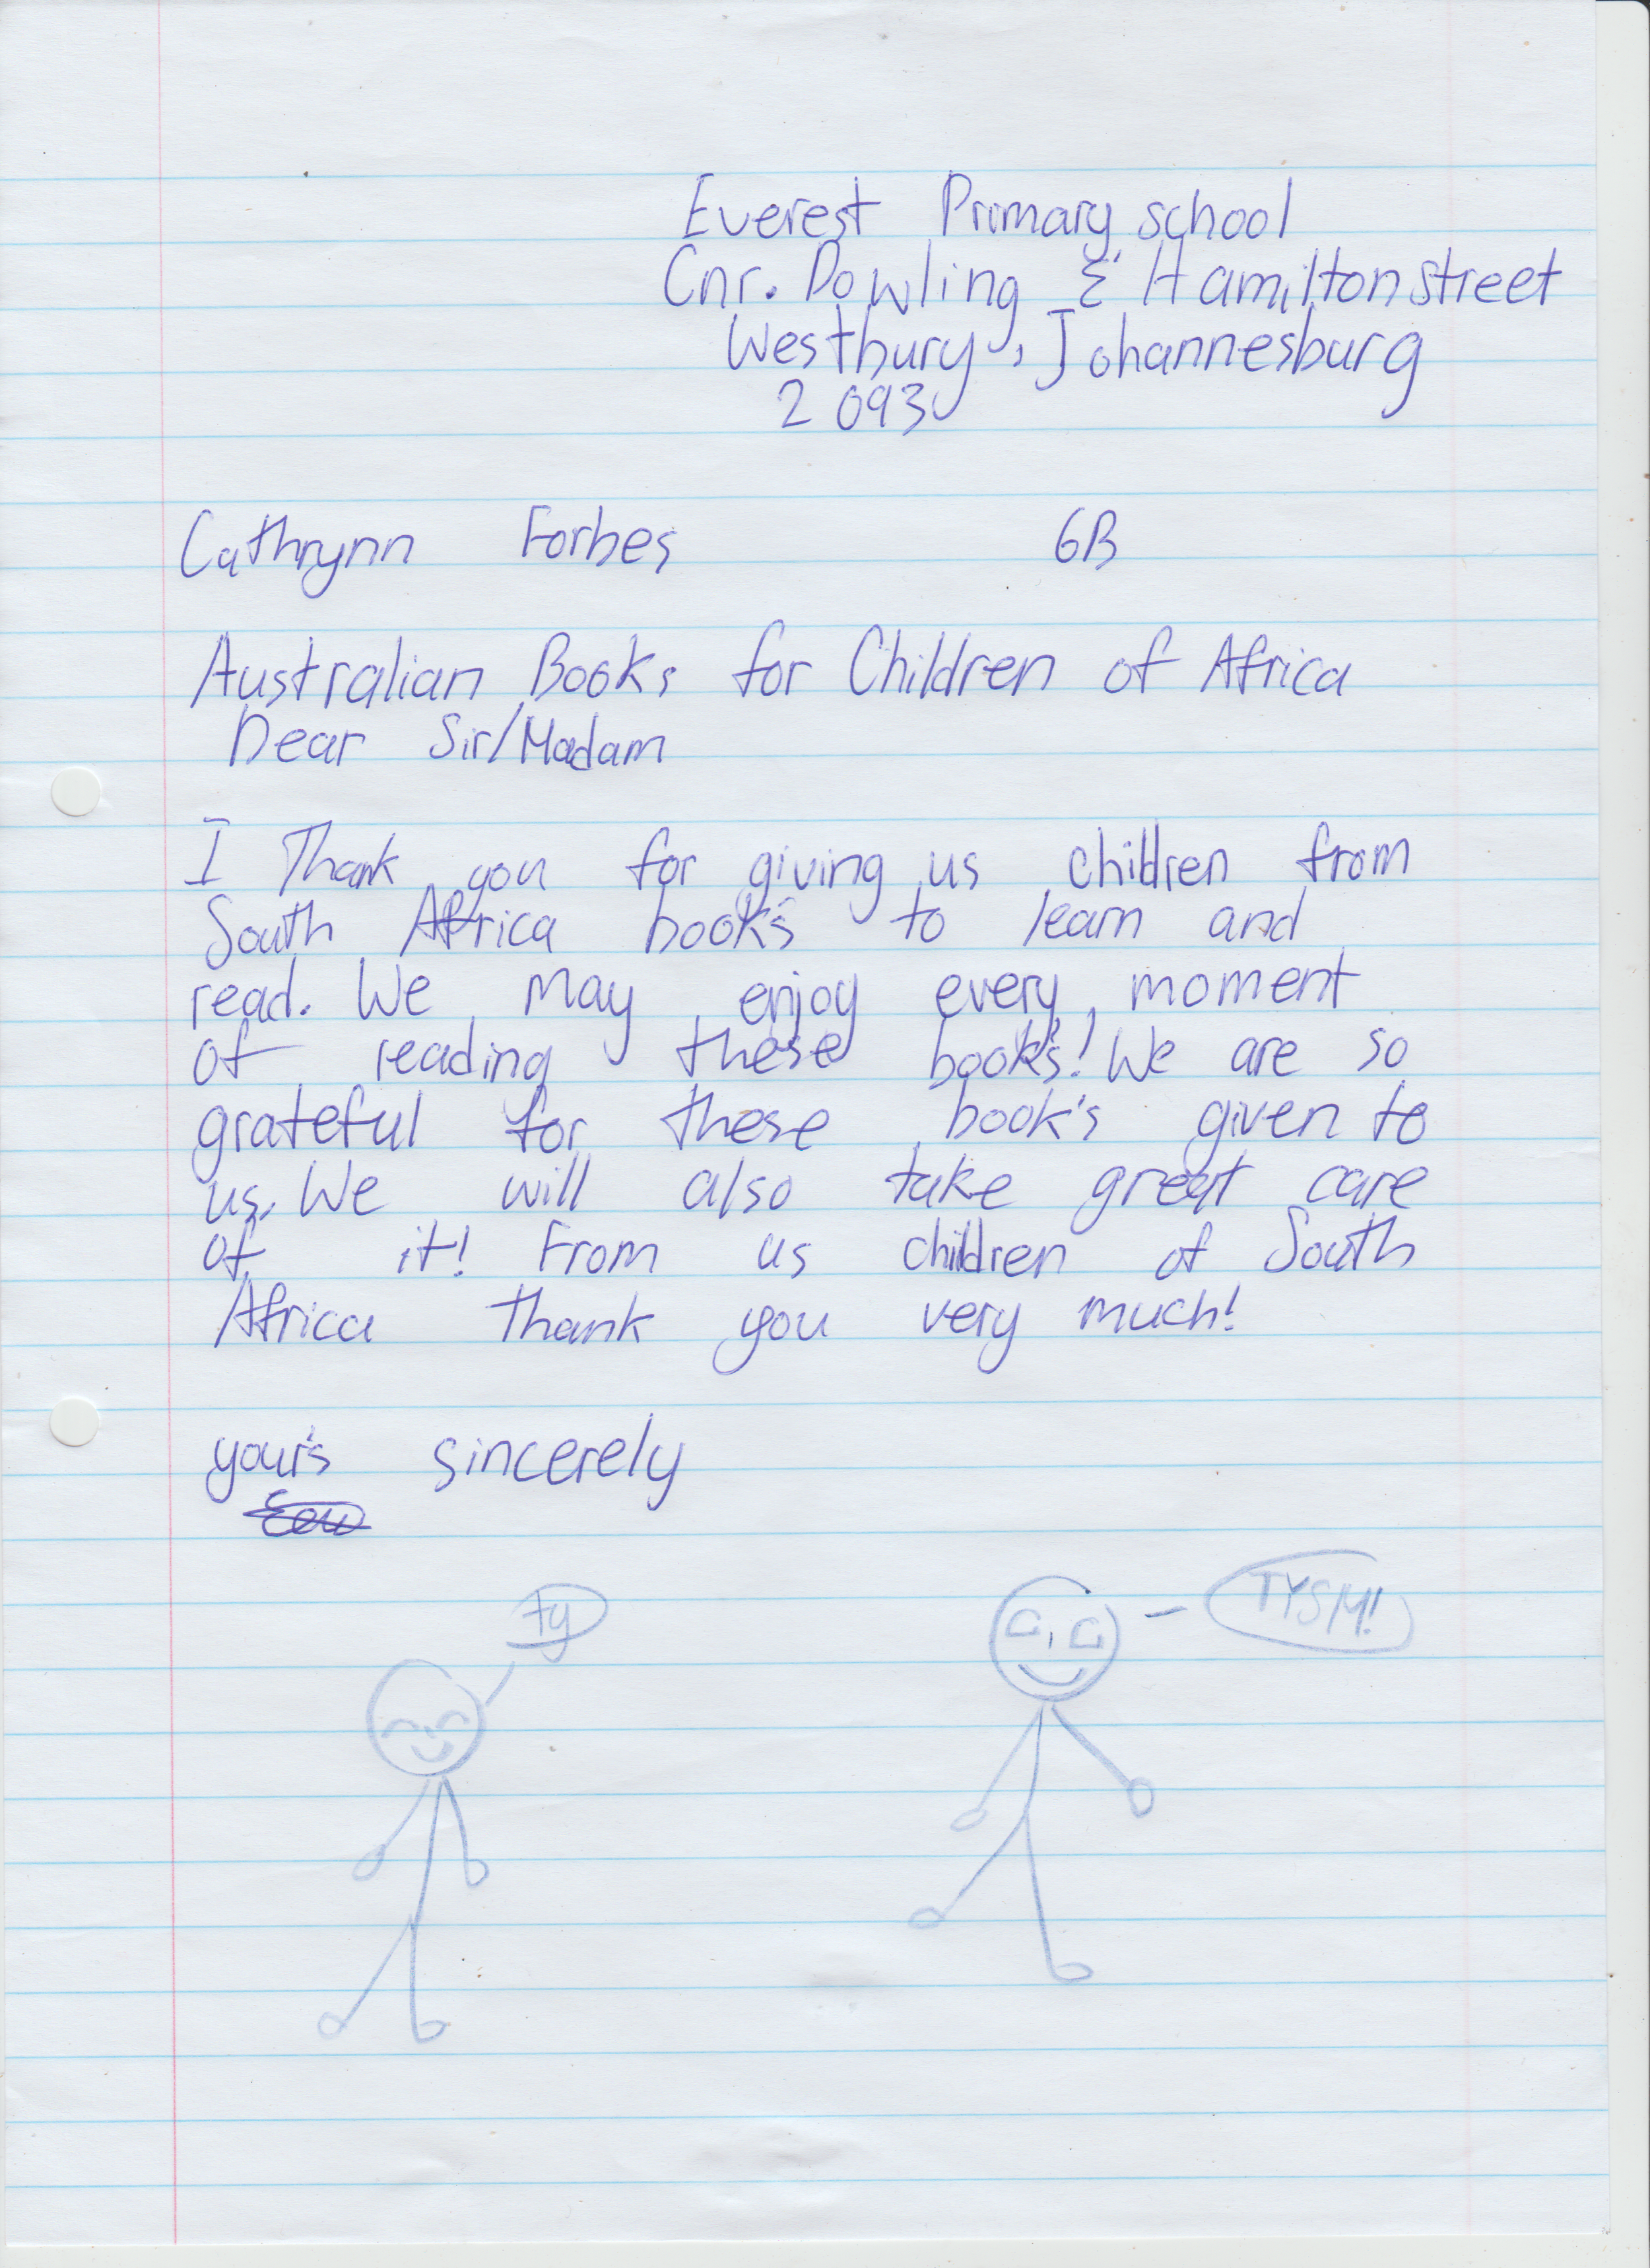 Everest Primary school
Cnr. Dowling & Hamilton street
Westbury, Johannesburg
2093
Cathrynn Forbes 6B
Australian Books for Children of Africa
Dear Sir/Madam
I Thank you for giving us children from
South Africa book's to learn and
read. We may enjoy every moment
of reading these book's! We are so
grateful for these book's given to
us. We will also take great care
of it! From us children of South
Africa thank you very much!
your's sincerely
ty
TYSM!